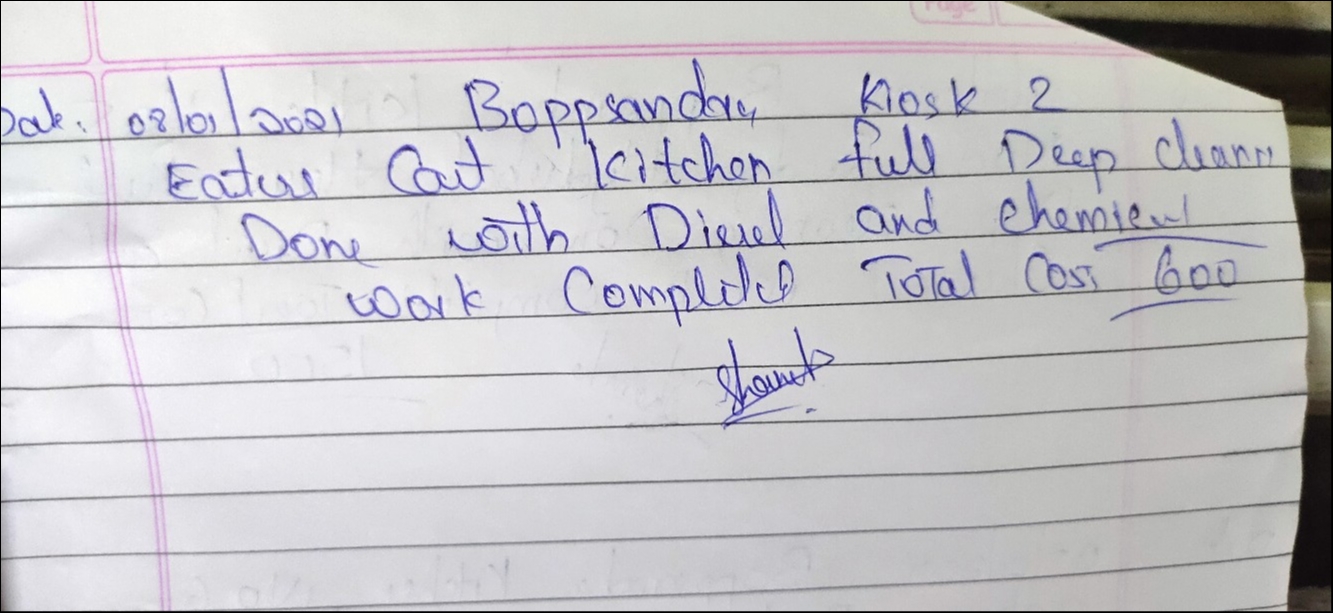 Page
Date. 08/01/2021 Boppsandra Kiosk 2
Kitchen full Deep
Done with Diesel and chemical
work Completed Total Cost 600